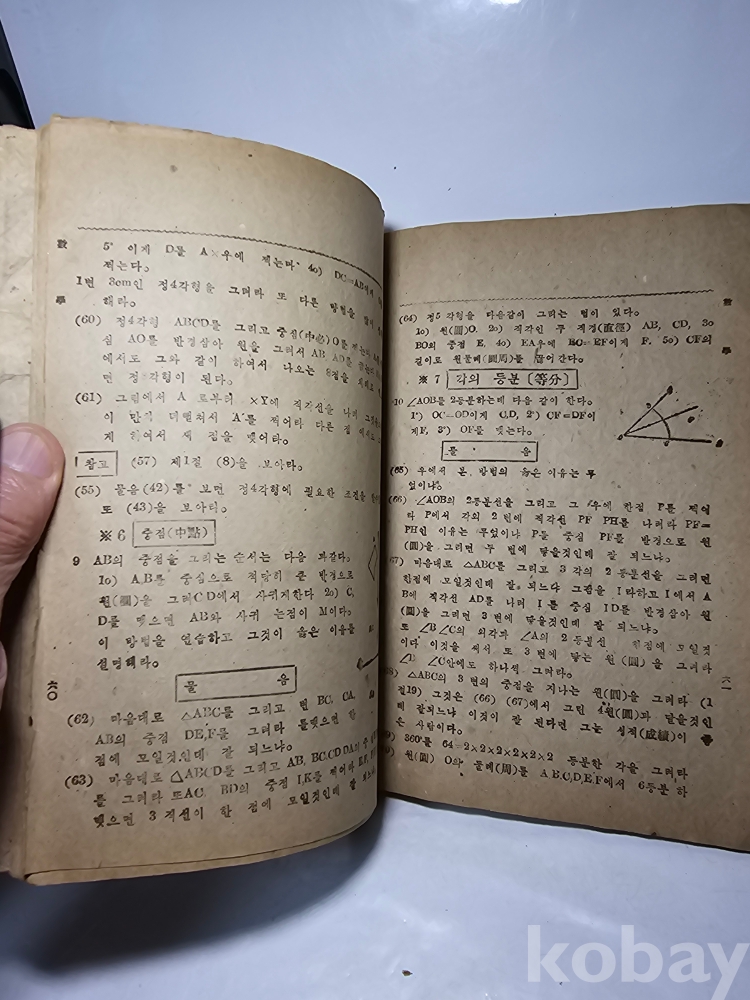 數
學
5° 이게 D를 A×우에 찍는다 4o) DC=AB이게
찍는다。
1변 3cm인 정4각형을 그려라 또 다른 방법을
해라。
(60) 정4각형 ABCD를 그리고 중심(中心)O를
심 AO를 반경삼아 원을 그려서 AB AD를
에서도 그와 같이 하여서 나오는 8점을
면 정8각형이 된다。
(61) 그림에서 A 로부터 ×Y에 직각선을 나려
이 만기 더펼쳐서 A를 적어라 다른 점에서도
게 하여서 세 점을 맺어라。
참고 (57) 제1절 (8)을 보아라。
(55) 물음(42)를 보면 정4각형에 필요한 조건을
또 (43)을 보아라。
※ 6 중점(中點)
9 AB의 중점을 그리는 순서는 다음 과같다。
1o) A,B를 중심으로 적당히 큰 반경으로
원(圓)을 그려C D에서 사귀게한다 2o) C,
D를 맺으면 AB와 사귀 는점이 M이다。
이 방법을 연습하고 그것이 옳은 이유를
설명해라。
물 음
(62) 마음대로 △ABC를 그리고 변 BC, CA,
AB의 중점 DE,F를 그려라 틀맺으면 한
점에 모일것인데 잘 되느냐。
(63) 마음대로 △ABCD를 그리고 AB, BC,CD,DA의 중
를 그려라 또AC, BD의 중점 I,K를 찍어라 E,F
맺으면 3 직선이 한 점에 모일것인데 잘
六〇
數
學
(64) 정5각형을 다음같이 그리는 법이 있다。
1o) 원(圓)O. 2o) 직각인 두 직경(直徑) AB, CD, 3o
BO의 중점 E, 4o) EA우에 EC=EF이게 F. 5o) CF의
길이로 원둘레(圓周)를 끊어간다。
※ 7 각의 등분〔等分〕
10 ∠AOB를 2등분하는데 다음 같이 한다。
1°) OC=OD이게 C,D, 2°) CF=DF이
게F, 3°) OF를 맺는다。
물 음
(65) 우에서 본 방법의 옳은 이유는 무
엇이냐。
(66) ∠AOB의 2등분선을 그리고 그 우에 한점 P를 찍어
라 P에서 각의 2 변에 직각선 PF PH를 나려라 PF=
PH인 이유는 무엇이냐 P를 중심 PF를 반경으로 원
(圓)을 그리면 두 변에 닿을것인데 잘 되느냐。
(67) 마음대로 △ABC를 그리고 3 각의 2 등분선을 그리면
한점에 모일것인데 잘 되느냐 그점을 I라하고 I에서 A
B에 직각선 AD를 나려 I를 중심 ID를 반경삼아 원
(圓)을 그리면 3 변에 닿을것인데 잘 되느냐。
또 ∠B ∠C의 외각과 ∠A의 2등분선 한점에 모일것
이다 이것을 써서 또 3 변에 닿는 원 (圓) 을 그려라
∠B ∠C안에도 하나씩 그려라。
△ABC의 3 변의 중점을 지나는 원(圓)을 그려라 (1
절19) 그것은 (66) (67)에서 그린 4원(圓)과 닿을것인
데 잘되느냐 이것이 잘 된다면 그는 성적(成績)이
은 사람이다。
360°를 64=2×2×2×2×2×2 등분한 각을 그려라
원(圓) O와 둘레(周)를 A B,C,D,E,F에서 6등분 하
六一
kobay